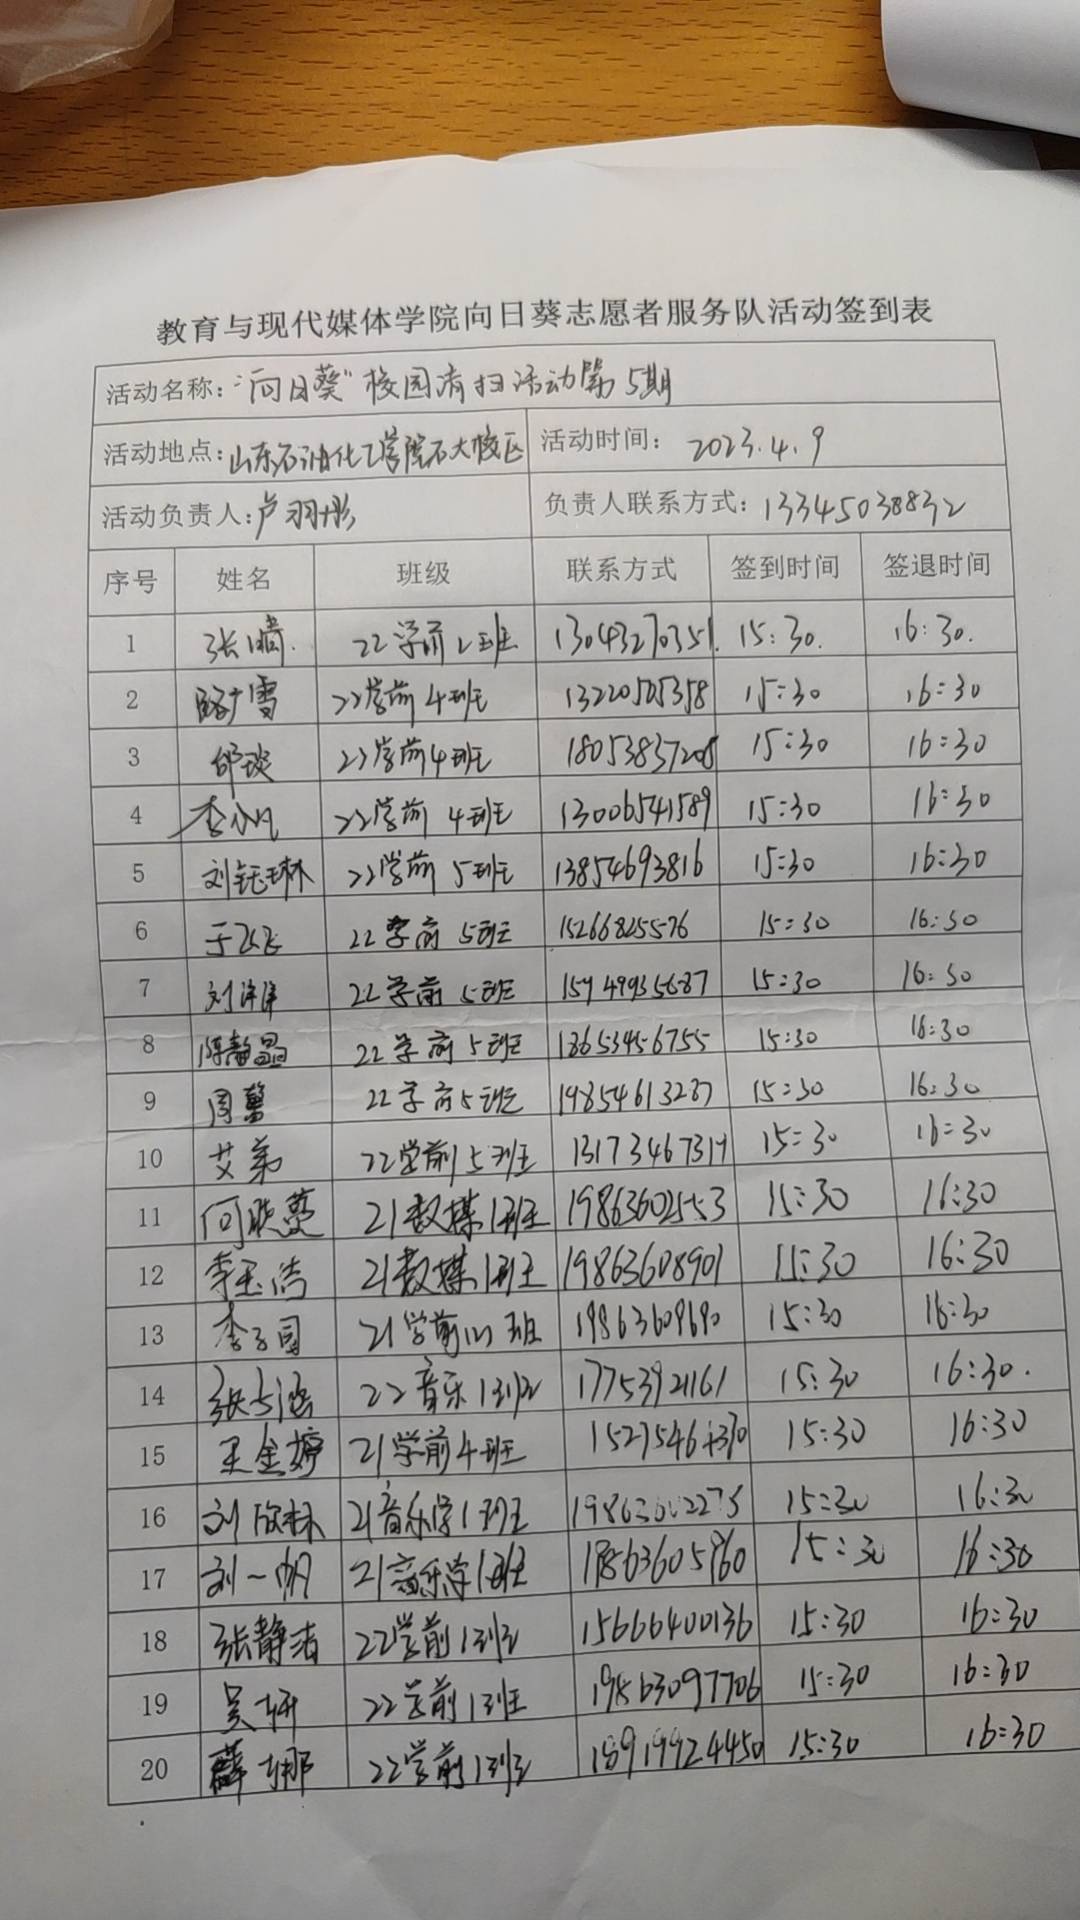 教育与现代媒体学院向日葵志愿者服务队活动签到表
活动名称：“向日葵”校园清扫活动第5期
活动地点：山东石油化工学院石大校区 活动时间： 2023.4.9
活动负责人：卢羽彤 负责人联系方式：13345038832
序号 姓名 班级 联系方式 签到时间 签退时间
1 张晴 22学前2班 13043270351 15:30 16:30
2 骆雪 22学前4班 13220505358 15:30 16:30
3 邰琰 22学前4班 18053837208 15:30 16:30
4 李凡 22学前4班 13006541589 15:30 16:30
5 刘钰琳 22学前5班 13854693816 15:30 16:30
6 于飞飞 22学前5班 15266825576 15:30 16:30
7 刘洋洋 22学前5班 15949935687 15:30 16:30
8 陈静晶 22学前5班 18653456755 15:30 16:30
9 周馨 22学前5班 19854613287 15:30 16:30
10 艾弟 22学前5班 15:30 16:30
11 何映蔓 21数媒1班 19863602553 15:30 16:30
12 李玉浩 21数媒1班 19863608901 15:30 16:30
13 李子园 21学前 班 19863609690 15:30 16:30
14 22音乐1班 17753921161 15:30 16:30
15 王金婷 21学前4班 15:30 16:30
16 刘欣林 21音乐学1班 19863602275 15:30 16:30
17 刘一帆 21音乐学1班 19863605960 15:30 16:30
18 张静洁 22学前1班 15666400136 15:30 16:30
19 吴妍 22学前1班 19863097706 15:30 16:30
20 薛娜 22学前1班 18919924450 15:30 16:30